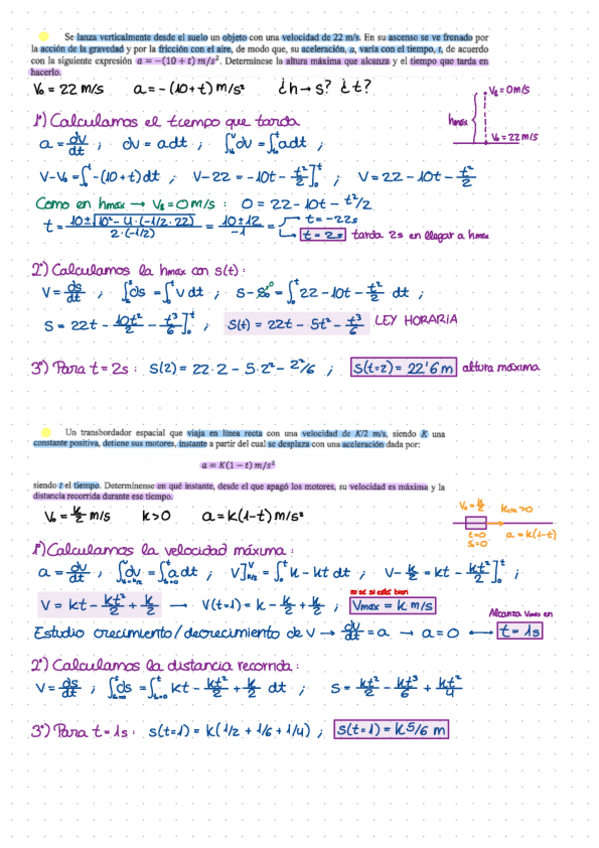 Se lanza verticalmente desde el suelo un objeto con una velocidad de 22 m/s. En su ascenso se ve frenado por
la acción de la gravedad y por la fricción con el aire, de modo que, su aceleración, a, varía con el tiempo, t, de acuerdo
con la siguiente expresión a = −(10 + t) m/s². Determínese la altura máxima que alcanza y el tiempo que tarda en
hacerlo.
V₀ = 22 m/s a = -(10+t) m/s² ¿h → s? ¿t?
V₈ = 0 m/s
hmax
V₀ = 22 m/s
1º) Calculamos el tiempo que tarda
a = dv/dt ; dv = a dt ; ∫dv = ∫a dt ;
V-V₀ = ∫-(10+t) dt ; V-22 = -10t - t²/2]₀ᵗ ; V = 22 - 10t - t²/2
Como en hmax → V₈ = 0 m/s : 0 = 22 - 10t - t²/2
t = 10±√(10² - 4·(-1/2·22)) / 2·(-1/2) = 10±12 / -1 = t = -22s
t = 2s tarda 2s en llegar a hmax
2º) Calculamos la hmax con s(t) :
V = ds/dt ; ∫ds = ∫V dt ; s - s₀ = ∫22 - 10t - t²/2 dt ;
S = 22t - 10t²/2 - t³/6]₀ᵗ ; s(t) = 22t - 5t² - t³/6 LEY HORARIA
3º) Para t = 2s : s(2) = 22·2 - 5·2² - 2³/6 ; s(t=2) = 22'6 m altura máxima
Un transbordador espacial que viaja en línea recta con una velocidad de K/2 m/s, siendo K una
constante positiva, detiene sus motores, instante a partir del cual se desplaza con una aceleración dada por:
a = K(1 − t) m/s²
siendo t el tiempo. Determínense en qué instante, desde el que apagó los motores, su velocidad es máxima y la
distancia recorrida durante ese tiempo.
V₀ = k/2 m/s k>0 a = k(1-t) m/s²
V₀ = k/2
t=0
s=0
a = k(1-t)
1º) Calculamos la velocidad máxima :
a = dv/dt ; ∫dv = ∫a dt ; V] = ∫k - kt dt ; V - k/2 = kt - kt²/2]₀ᵗ ;
no sé si está bien
V = kt - kt²/2 + k/2 → V(t=1) = k - k/2 + k/2 ; Vmax = k m/s
Alcanza Vmax en
Estudio crecimiento/decrecimiento de V → dv/dt = a → a = 0 ⟷ t = 1s
2º) Calculamos la distancia recorrida :
V = ds/dt ; ∫ds = ∫kt - kt²/2 + k/2 dt ; S = kt²/2 - kt³/6 + kt²/4
3º) Para t = 1s : s(t=1) = k(1/2 + 1/6 + 1/4) ; s(t=1) = k 5/6 m